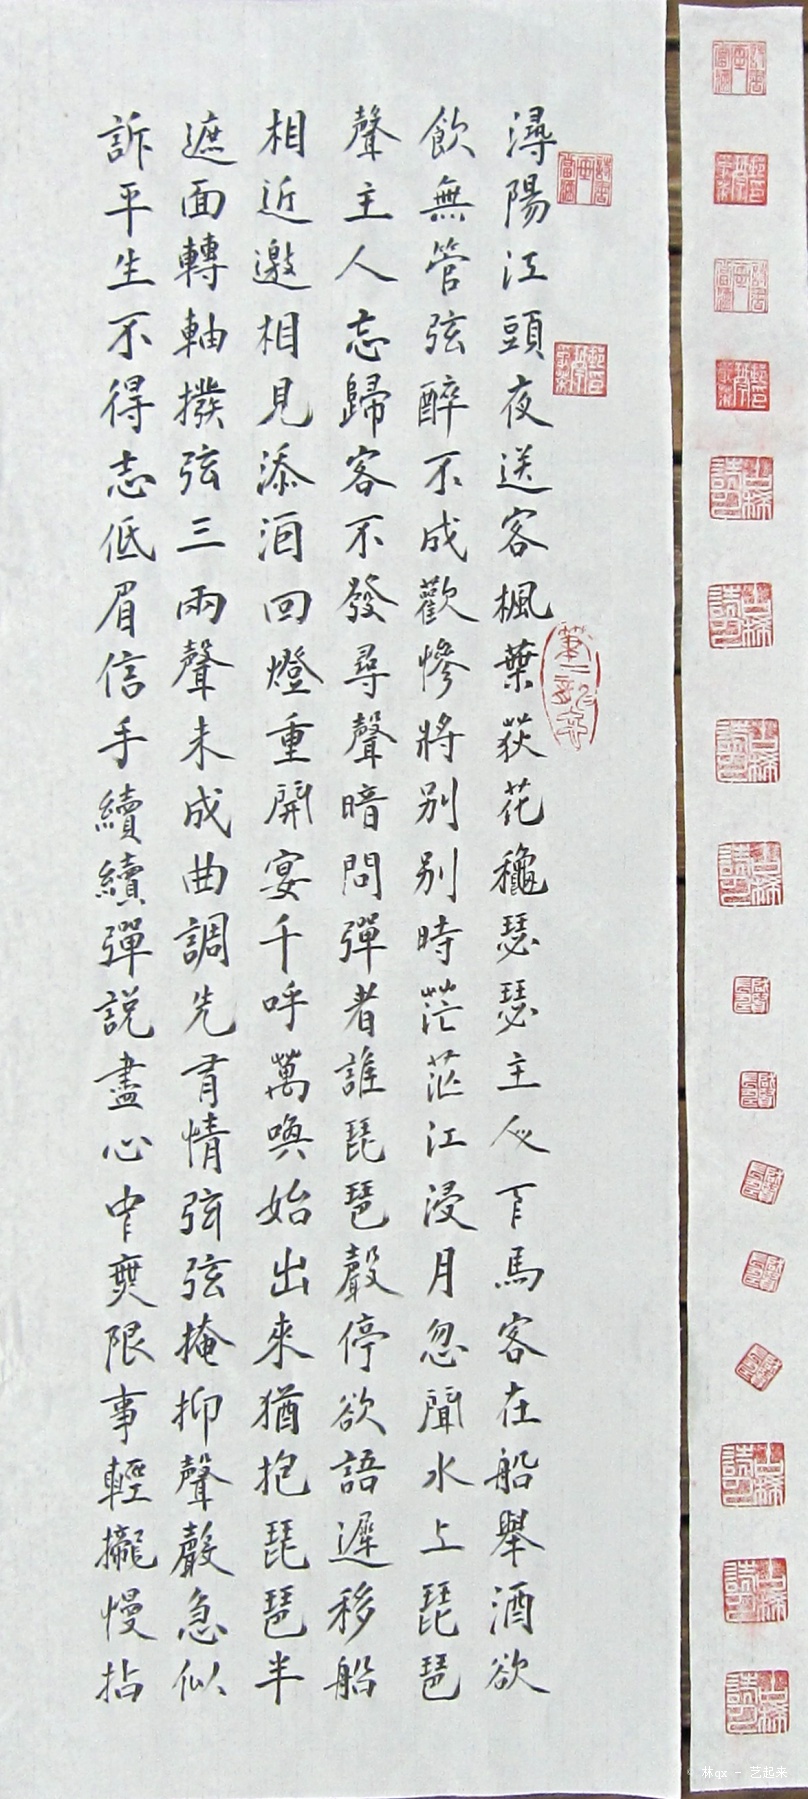 潯陽江頭夜送客楓葉荻花龝瑟瑟主人下馬客在船舉酒欲
飲無管弦醉不成歡慘將別別時茫茫江浸月忽聞水上琵琶
聲主人忘歸客不發尋聲暗問彈者誰琵琶聲停欲語遲移船
相近邀相見添酒回燈重開宴千呼萬喚始出來猶抱琵琶半
遮面轉軸撥弦三兩聲未成曲調先有情弦弦掩抑聲聲急似
訴平生不得志低眉信手續續彈説盡心中無限事輕攏慢拈
林qx - 艺起来